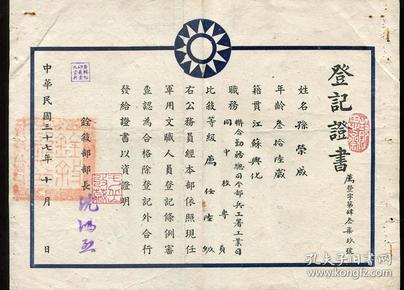 登記證書
萬登字第肆叁柒玖號
姓名 孫榮成
年齡 叁拾陸歲
籍貫 江蘇興化
職務 聯合勤務總司令部兵工署工業司
同中校專員
比敘等級 薦任陸級
右公務員經本部依照現任
軍用文職人員登記條例審
查認為合格除登記外合行
發給證書以資證明
銓敘部部長 沈鴻烈
中華民國三十七年十月 日
孔夫子旧书网